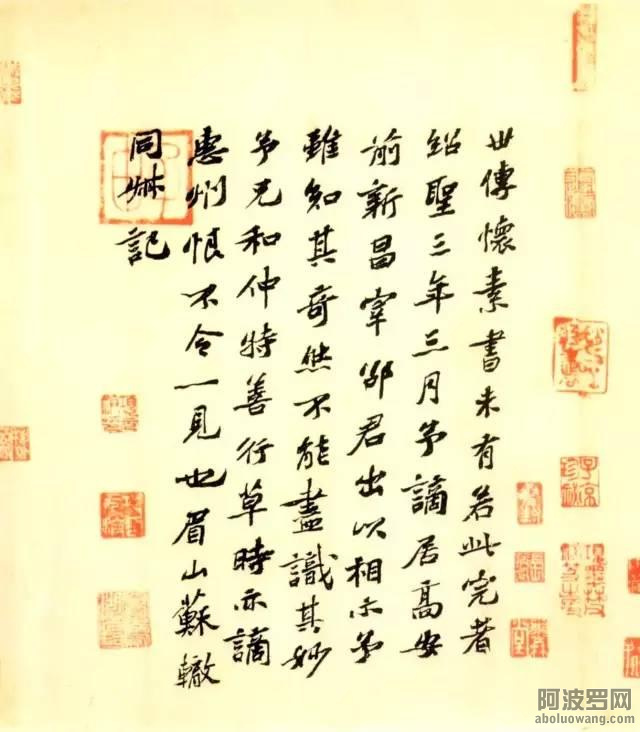 世傳懷素書未有若此完者
紹聖三年三月予謫居高安
前新昌宰邵君出以相示予
雖知其奇然不能盡識其妙
予兄和仲特善行草時亦謫
惠州恨不令一見也眉山蘇轍
同叔記
阿波罗网
aboluowang.com